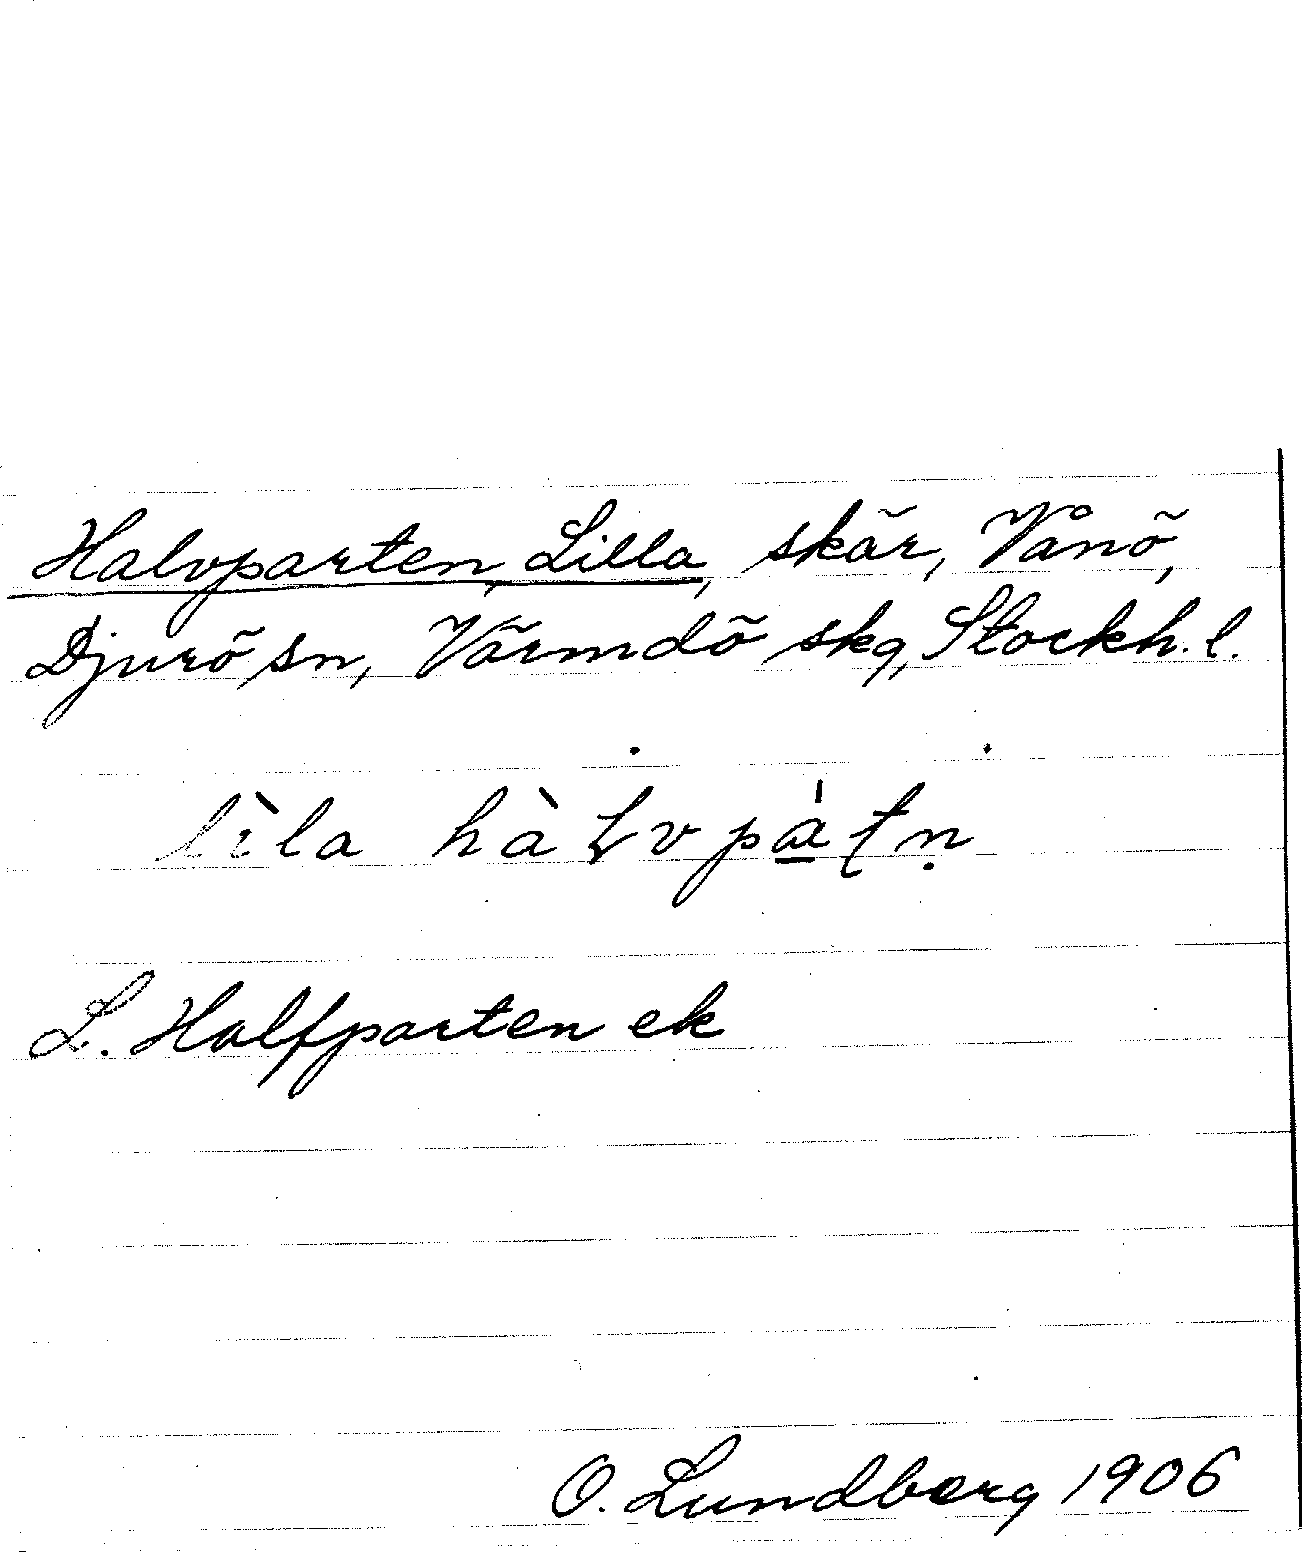 Halvparten, Lilla, skär, Vånö,
Djurö sn, Värmdö skg, Stockh. l.
lìla hàƚvpa̲̍ʈṇ
L. Halfparten ek
O. Lundberg 1906